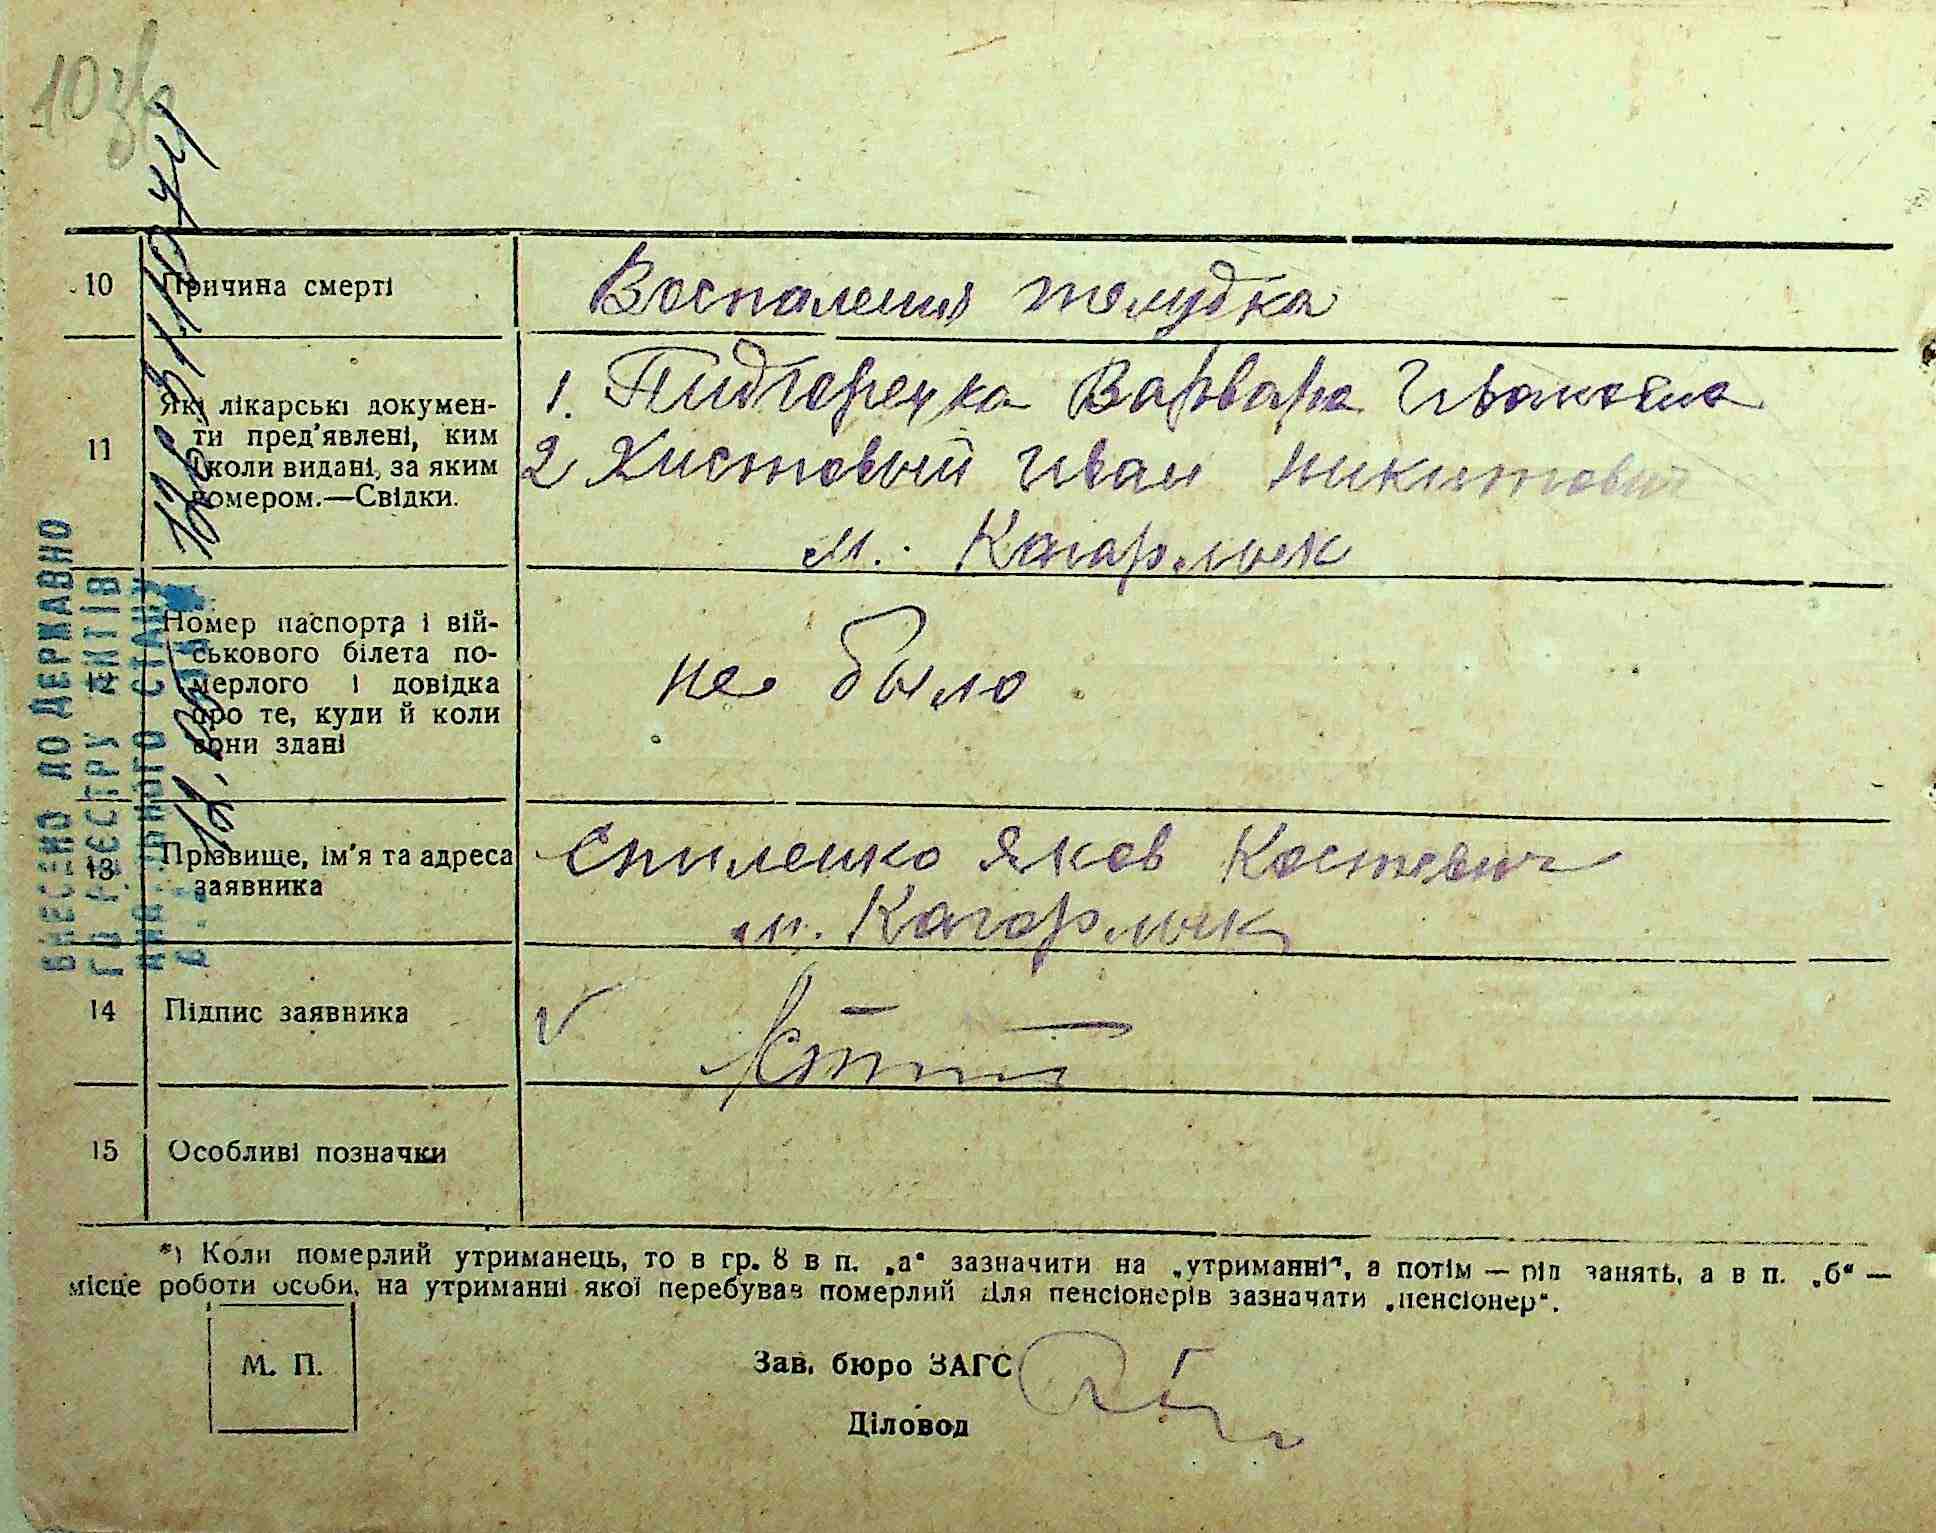 10 зв
10 Причина смерті Воспаления желудка
11 Які лікарські докумен-
ти пред'явлені, ким
і коли видані, за яким
номером.—Свідки.
1. Пидгорецка Варвара Ивановна
2 Хистовый Иван Никитович
м. Кагарлык
12 Номер паспорта і вій-
ськового білета по-
мерлого і довідка
про те, куди й коли
вони здані
не было
13 Прізвище, ім'я та адреса
заявника
Спиленко Яков Костевич
м. Кагарлык
14 Підпис заявника
15 Особливі позначки
*) Коли померлий утриманець, то в гр. 8 в п. „а“ зазначити на „утриманні“, а потім — рід занять, а в п. „б“ —
місце роботи особи, на утриманні якої перебував померлий Для пенсіонерів зазначати „пенсіонер“.
М. П.
Зав. бюро ЗАГС
Діловод
ВНЕСЕНО ДО ДЕРЖАВНО
ГО РЕЄСТРУ АКТІВ
СТАНУ